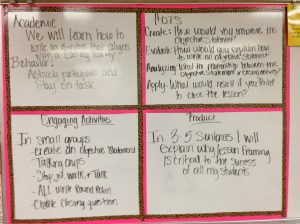 Academic
We will learn how to
write an objective that aligns
with a closing
Behavior:
Actively participate and
stay on task
HOTS
Create: How would you improve the
objective statement?
Evaluate: How would you explain how
to write an objective statement?
Analyzing: What is the relationship between the
objective statement & closing activity?
Apply: What would result if you failed
to close the lesson?
Engaging Activities
In small groups
-create an objective statement
-Talking chips
-Stop, jot, walk, + Talk
-ALL write Round Robin
-Create closing question
Product
In 3-5 Sentences I will
Explain why lesson framing
is critical to the success
of all my students